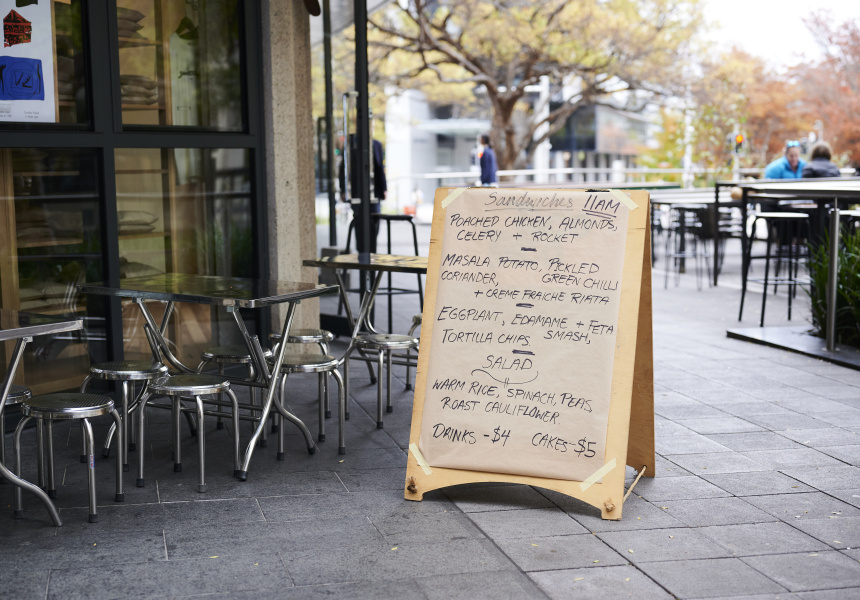 Sandwiches 11AM
POACHED CHICKEN, ALMONDS,
CELERY + ROCKET
MASALA POTATO, PICKLED
CORIANDER, GREEN CHILLI
+ CREME FRAICHE RIATA
EGGPLANT, EDAMAME + FETA
TORTILLA CHIPS SMASH,
SALAD
WARM RICE, SPINACH, PEAS,
ROAST CAULIFLOWER.
DRINKS - $4 CAKES - $5